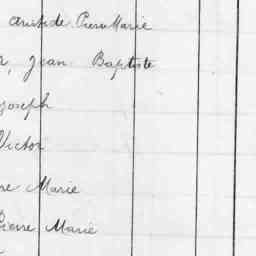 Aristide Pierre Marie
, Jean Baptiste
Joseph
Victor
re Marie
Pierre Marie